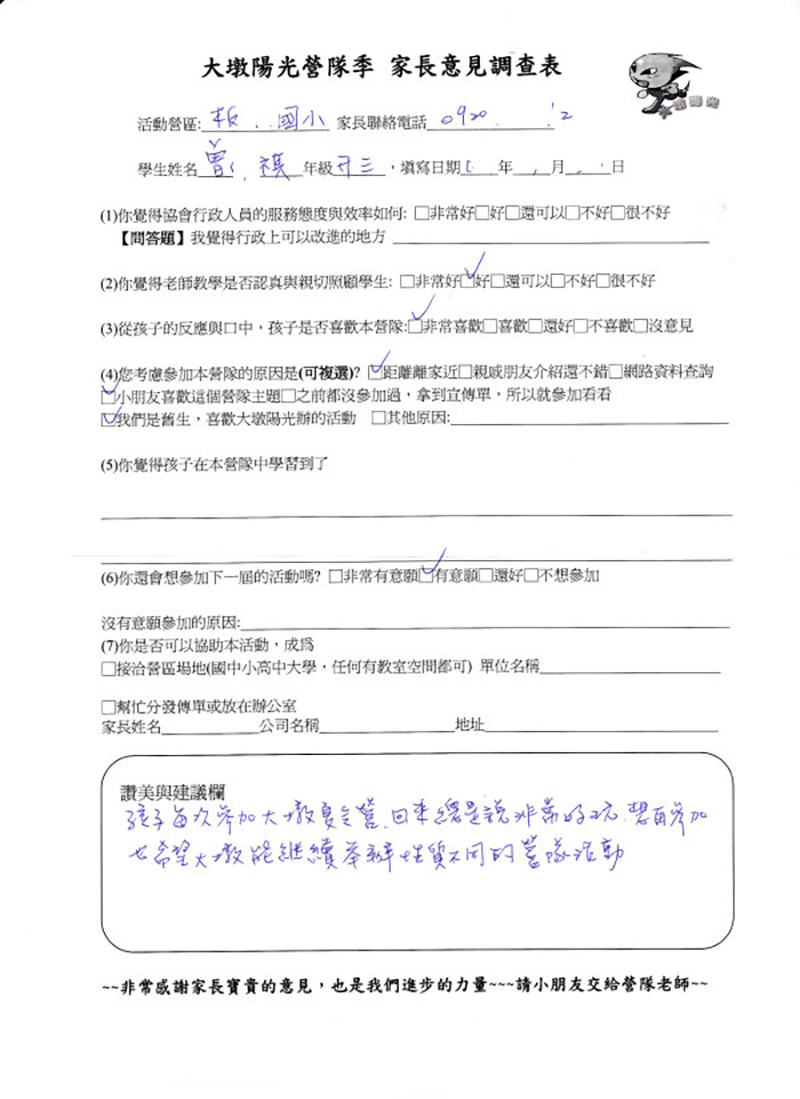 大墩陽光營隊季 家長意見調查表
活動營區:板 國小 家長聯絡電話0920 2
學生姓名曾 祺 年級升三,填寫日期 年 月 日
(1)你覺得協會行政人員的服務態度與效率如何: □非常好□好□還可以□不好□很不好
【問答題】我覺得行政上可以改進的地方
(2)你覺得老師教學是否認真與親切照顧學生: □非常好☑好□還可以□不好□很不好
(3)從孩子的反應與口中,孩子是否喜歡本營隊:☑非常喜歡□喜歡□還好□不喜歡□沒意見
(4)您考慮參加本營隊的原因是(可複選)? ☑距離離家近□親戚朋友介紹還不錯□網路資料查詢
☑小朋友喜歡這個營隊主題□之前都沒參加過,拿到宣傳單,所以就參加看看
☑我們是舊生,喜歡大墩陽光辦的活動 □其他原因:
(5)你覺得孩子在本營隊中學習到了
(6)你還會想參加下一屆的活動嗎? □非常有意願☑有意願□還好□不想參加
沒有意願參加的原因:
(7)你是否可以協助本活動,成為
□接洽營區場地(國中小高中大學,任何有教室空間都可) 單位名稱
□幫忙分發傳單或放在辦公室
家長姓名 公司名稱 地址
讚美與建議欄
孩子每次參加大墩夏令營,回來總是說非常好玩,想再參加
也希望大墩能繼續舉辦性質不同的營隊活動
~~非常感謝家長寶貴的意見,也是我們進步的力量~~~請小朋友交給營隊老師~~